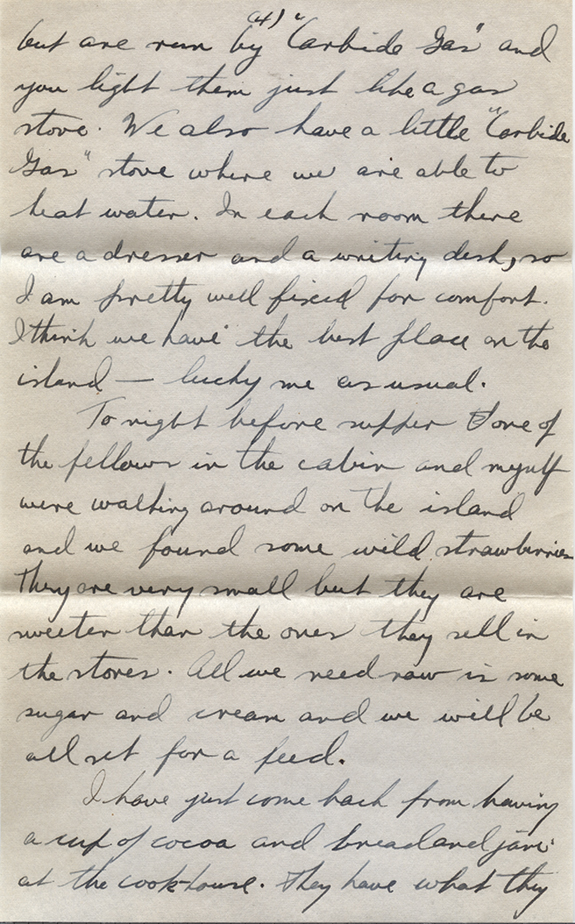 (4)
but are run by "Carbide Gas" and
you light them just like a gas
stove. We also have a little "Carbide
Gas" stove where we are able to
heat water. In each room there
are a dresser and a writing desk, so
I am pretty well fixed for comfort.
I think we have the best place on the
island — lucky me as usual.
To night before supper one of
the fellows in the cabin and myself
were walking around on the island
and we found some wild strawberries
They are very small but they are
sweeter than the ones they sell in
the stores. All we need now is some
sugar and cream and we will be
all set for a feed.
I have just come back from having
a cup of cocoa and bread and jam
at the cook-house. They have what they